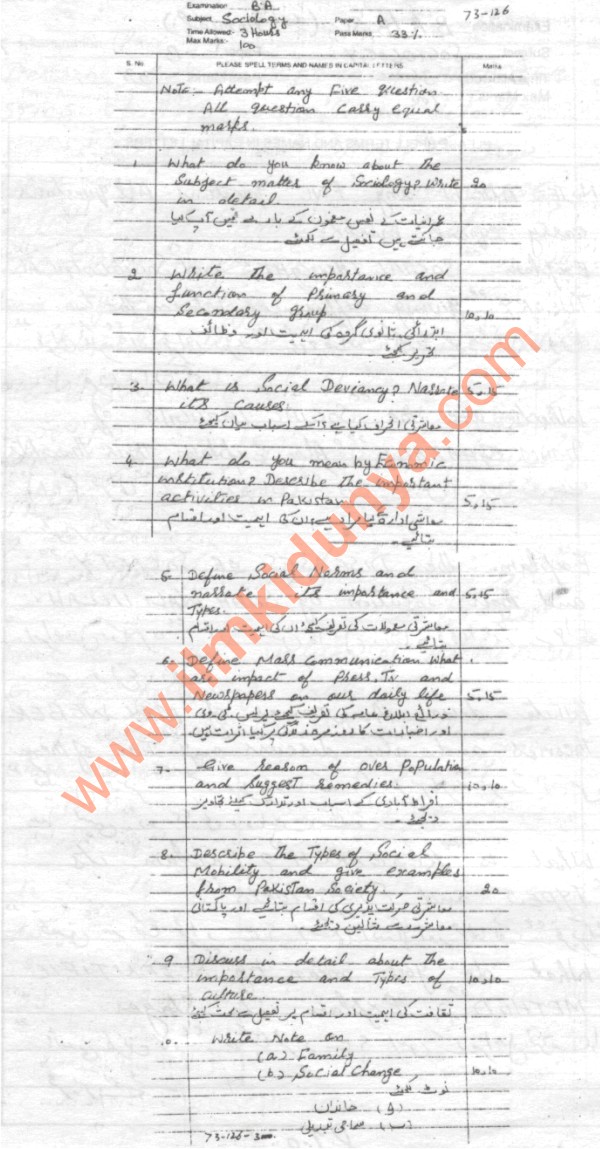 Examination B.A 73-126
Subject Sociology Paper A
Time Allowed:- 3 Hours Pass Marks 33%
Max Marks:- 100
S. No PLEASE SPELL TERMS AND NAMES IN CAPITAL LETTERS Marks
Note:- Attempt any Five question
All question carry equal
marks.
1. What do you know about the
Subject matter of Sociology? Write 20
in detail.
عمرانیات کے نفس مضمون کے بارے میں آپ کیا
جانتے ہیں تفصیل سے لکھئے
2 Write the importance and
function of Primary and
Secondary group 10,10
ابتدائی، ثانوی گروہ کی اہمیت اور وظائف
تحریر کیجئے
3. What is Social Deviancy? Narrate 5,15
its causes
معاشرتی انحراف کیا ہے؟ اسکے اسباب بیان کیجئے
4. What do you mean by Economic
institution? Describe the important
activities in Pakistan 5,15
معاشی ادارے سے کیا مراد ہے، ان کی اہمیت اور اقسام
بتائیے۔
5. Define Social Norms and
narrate its importance and 5,15
Types.
معاشرتی معمولات کی تعریف کیجئے، ان کی اہمیت اور اقسام
بتائیے۔
6. Define Mass Communication. What
are impact of Press, Tv and
Newspapers on our daily life 5,15
ذرائع ابلاغ عامہ کی تعریف کیجئے پریس، ٹی وی
اور اخبارات کا روزمرہ زندگی پر کیا اثرات ہیں
7. Give reason of over Population
and Suggest remedies. 10,10
افراط آبادی کے اسباب اور تدارک کیلئے تجاویز
دیجئے۔
8. Describe the Types of Social
Mobility and give examples
from Pakistan Society. 20
معاشرتی حرکت پذیری کی اقسام بتائیے اور پاکستانی
معاشرے سے مثالیں دیجئے۔
9 Discuss in detail about the
importance and Types of 10,10
culture.
ثقافت کی اہمیت اور اقسام پر تفصیل سے بحث کیجئے
0. Write Note on
(a) Family
(b) Social Change, 10,10
نوٹ لکھئے
خاندان
(ب) سماجی تبدیلی
73-126-
www.ilmkidunya.com